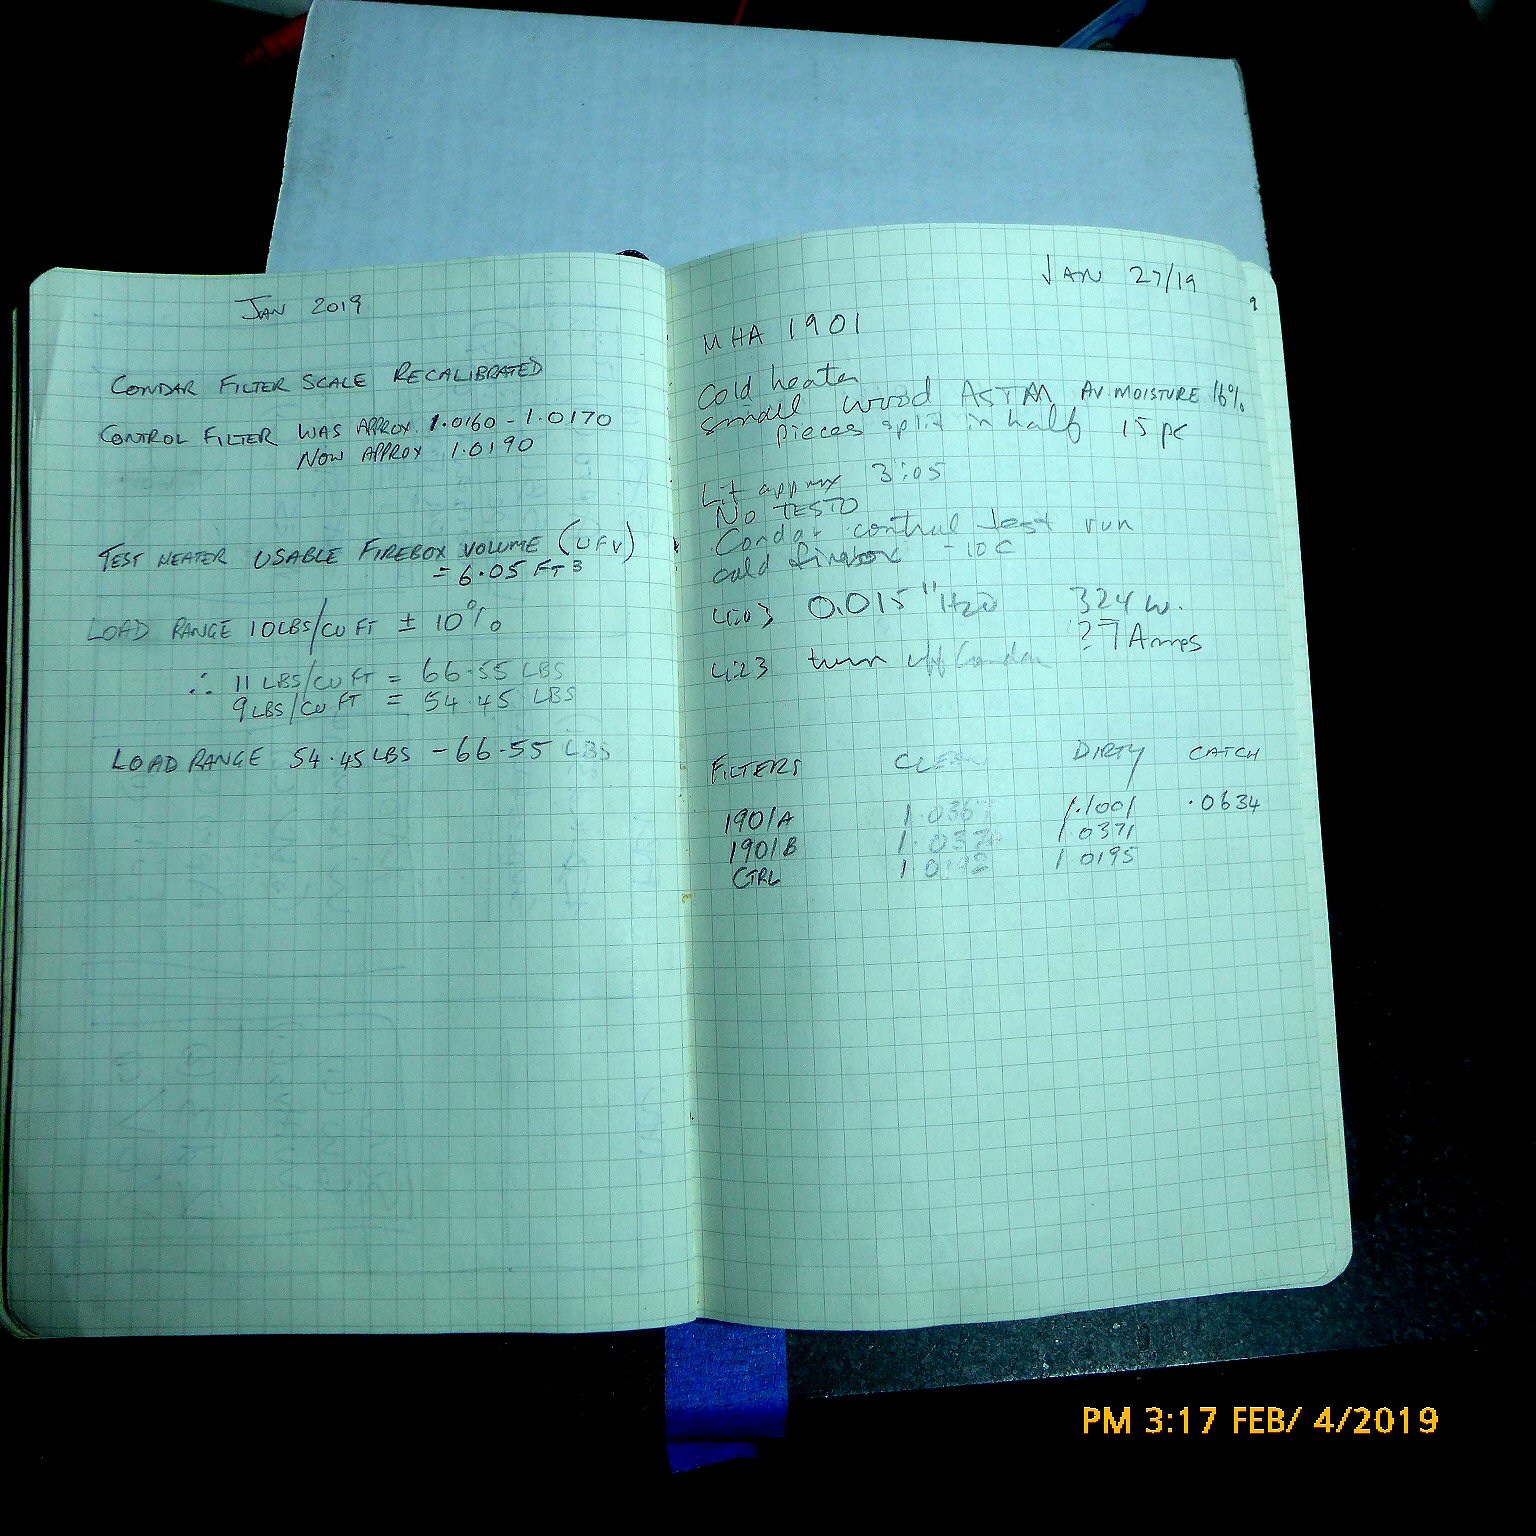 JAN 2019
CONDAR FILTER SCALE RECALIBRATED
CONTROL FILTER WAS APPROX 1.0160 - 1.0170
NOW APPROX 1.0190
TEST HEATER USABLE FIREBOX VOLUME (UFV)
= 6.05 FT3
LOAD RANGE 10LBS/CU FT ± 10%
∴ 11 LBS/CU FT = 66.55 LBS
9 LBS/CU FT = 54.45 LBS
LOAD RANGE 54.45 LBS - 66.55 LBS
JAN 27/19
9
MHA 1901
Cold heater
small wood ASTM AV MOISTURE 16%
pieces split in half 15 pc
Lit approx 3:05
NO TESTO
Condar control test run
cold firebox -10C
4:03 0.015 "H2O 324 W.
2.7 Amps
4:23 turn off Condar
FILTERS CLEAN DIRTY CATCH
1901A 1.0367 1.1001 .0634
1901B 1.0371
CTRL 1.0195
PM 3:17 FEB/ 4/2019